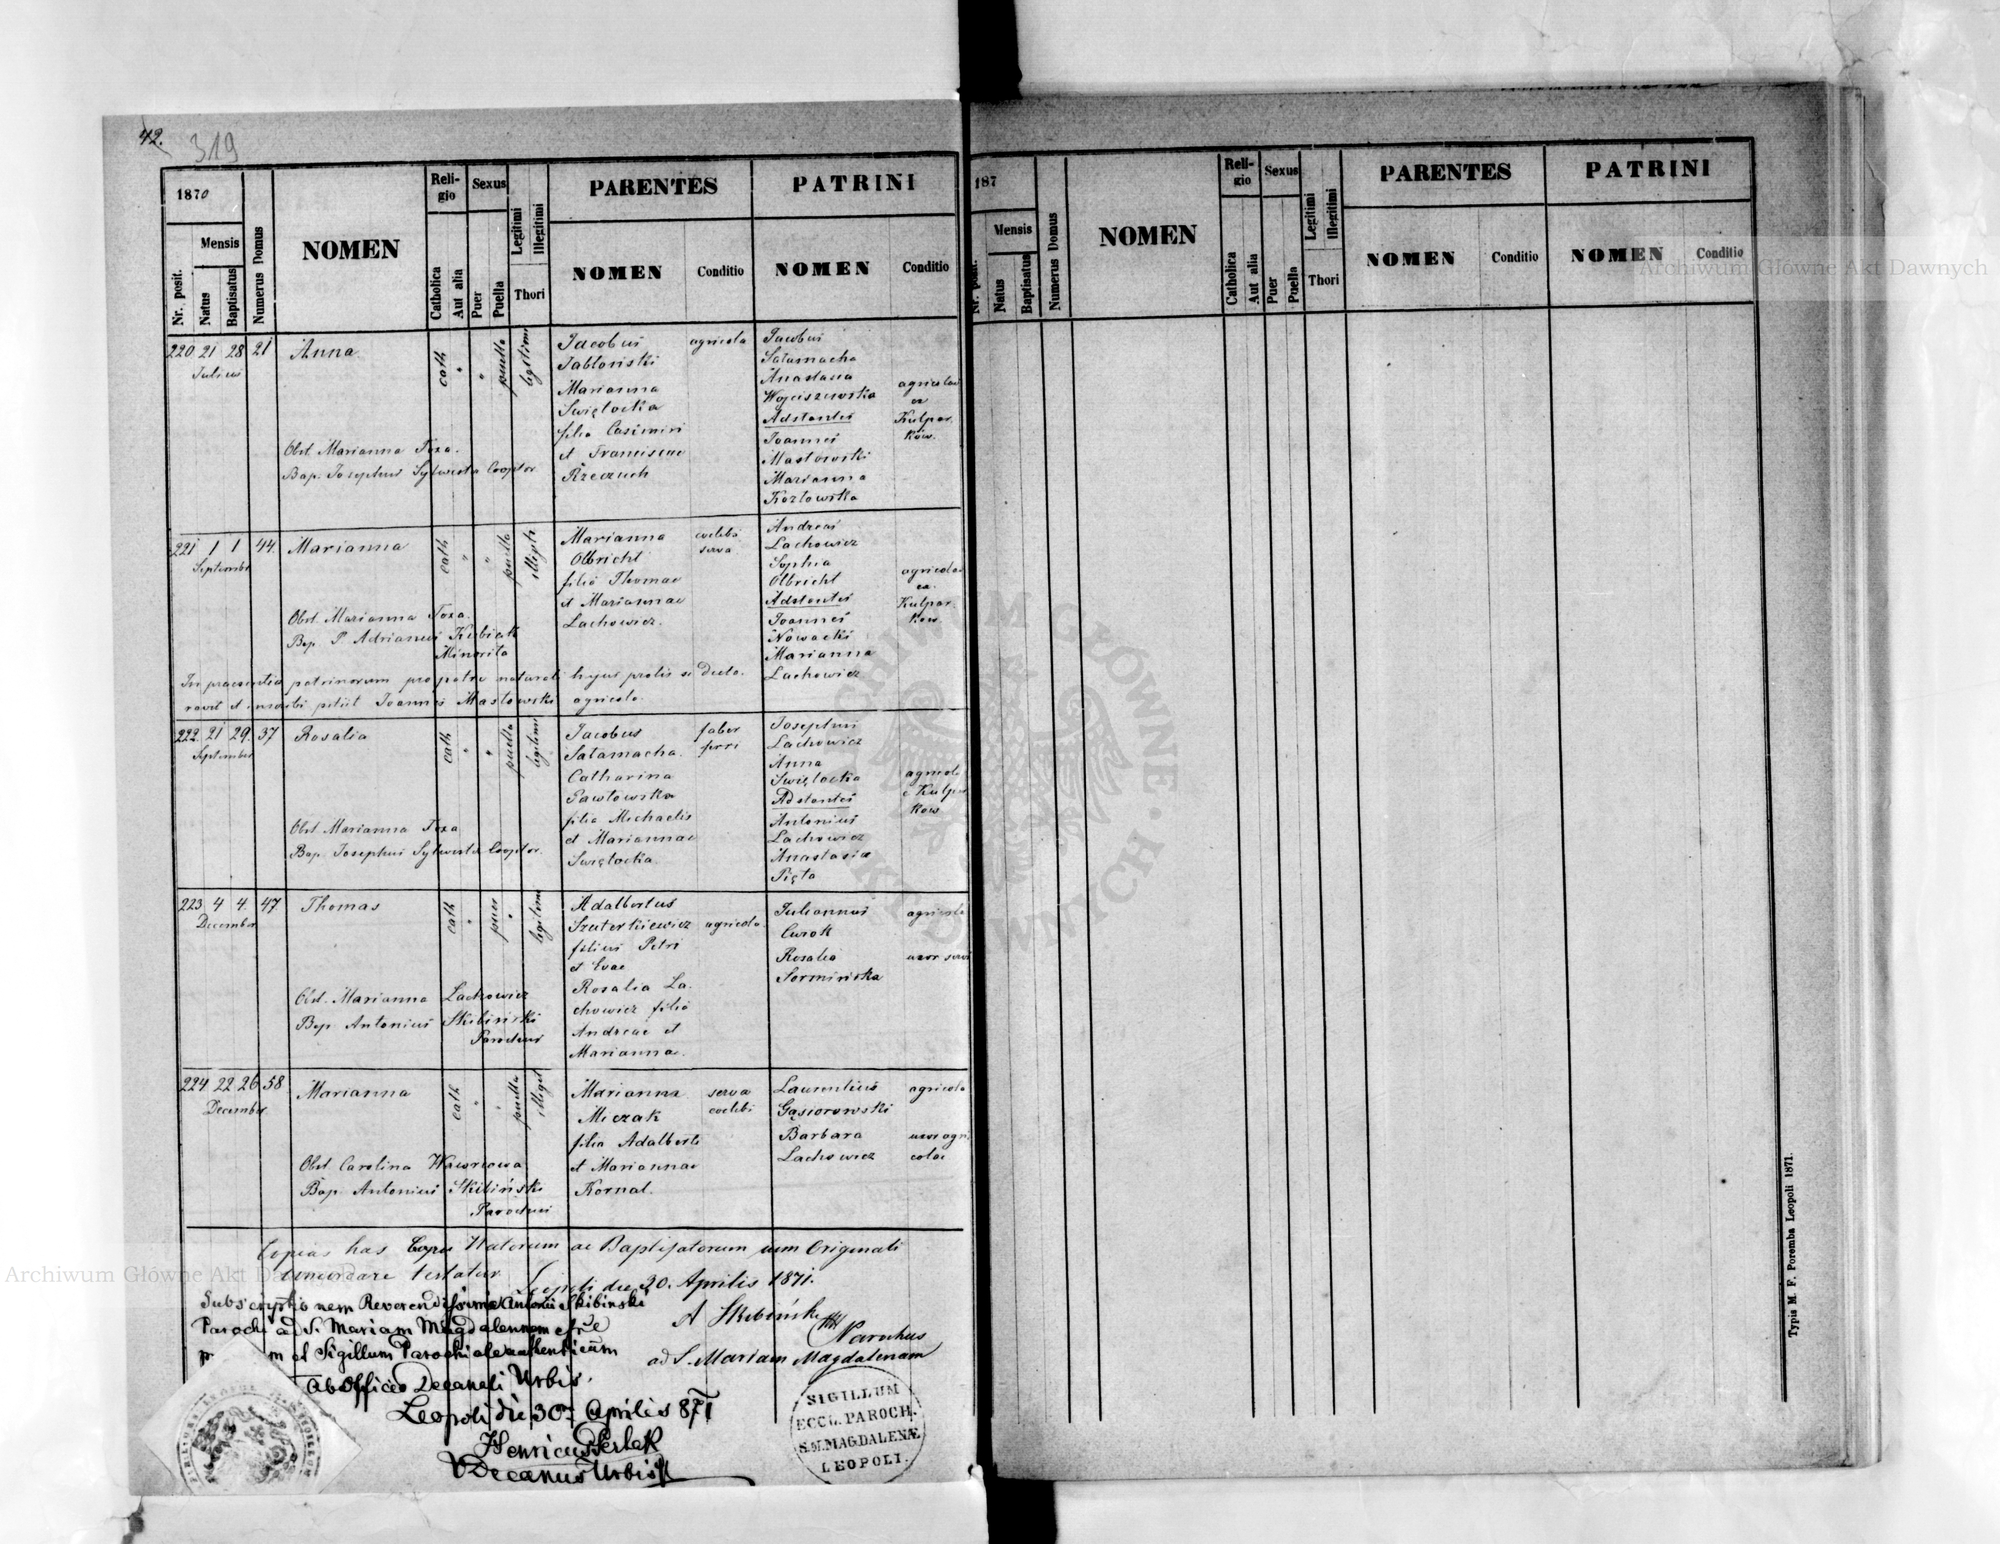 42.
319
1870
Nr. posit.
Mensis
Natus
Baptisatus
Numerus Domus
NOMEN
Reli-
gio
Catholica
Aut alia
Sexus
Puer
Puella
Legitimi
Illegitimi
Thori
PARENTES
NOMEN
Conditio
PATRINI
NOMEN
Conditio
220 21 28 21
Julius
Anna
cath
puella
legitimi
Obst. Marianna Toxa.
Bap. Josephus Sylwesta Cooptor
Jacobus
Jabłoński
Marianna
Swiętocka
filia Casimiri
et Franciscae
Rzeczuch
agricola
Jacobus
Sałamacha
Anastasia
Wojciszewska
Adstantes
Joannes
Masłowski
Marianna
Kozłowska
agricolae
ex
Kulpar
ków.
221 1 1 44.
September
Marianna
cath
puella
illegiti
Obst. Marianna Toxa.
Bap. P. Adrianus Kubicek
Minorita
Marianna
Olbricht
filia Thomae
et Mariannae
Lachowicz.
coelebs
serva
Andreas
Lachowicz
Sophia
Olbricht
Adstantes
Joannes
Nowacki
Marianna
Lachowicz
agricolae
ex.
Kulpar.
kow.
In praesentia patrinorum pro patre naturali hujus prolis se decla.
ravit et inscribi petiit Joannes Masłowski agricola.
222. 21 29. 37
September
Rosalia
cath
puella
legitimi
Obst. Marianna Toxa
Bap. Josephus Sylwesta Cooptor.
Jacobus
Sałamacha.
Catharina
Pawłowska
filia Michaelis
et Mariannae
Swiętocka.
faber
ferri
Josephus
Lachowicz
Anna
Swiętocka
Adstantes
Antonius
Lachowicz
Anastasia
Pięta
agricolae
e Kulpar
kow
223 4 4. 47
December
Thomas
cath
puer
legitimi
Obst. Marianna Lachowicz
Bap. Antonius Skibiński
Parochus
Adalbertus
Szuterkiewicz
filius Petri
et Evae
Rosalia La-
chowicz filia
Andreae et
Marianna.
agricola.
Julianus
Curok
Rosalia
Sormińska
agricola
uxor servi
224 22 26 58
December
Marianna
cath
puella
illegit
Obst. Carolina Wawrowa
Bap. Antonius Skibiński
Parochus
Marianna
Miczak
filia Adalberti
et Mariannae
Kornal.
serva
coelebs
Laurentius
Gąsiorowski
Barbara
Lachowicz
agricola
uxor agri
colae
Copias has Natorum ac Baptisatorum cum Originali
concordare testatur
Leopoli die 30. Aprilis 1871.
A Skibiński
Parochus
ad S. Mariam Magdalenam
Subscriptionem Reverendissimi Antonii Skibinski
Parochi ad S. Mariam Magdalenam esse
et Sigillum Parochiale authenticum
Ab Officio Decanali Urbis.
Leopoli die 30. Aprilis 871
Henricus
VDecanus Urbis
SIGILLUM
ECCL. PAROCH.
S. M. MAGDALENÆ
LEOPOLI.
187
Nr. posit.
Mensis
Natus
Baptisatus
Numerus Domus
NOMEN
Reli-
gio
Catholica
Aut alia
Sexus
Puer
Puella
Legitimi
Illegitimi
Thori
PARENTES
NOMEN
Conditio
PATRINI
NOMEN
Conditio
Typis M. F. Poremba Leopoli 1871.
Archiwum Główne Akt Dawnych
Archiwum Główne Akt Dawnych
ARCHIWUM GŁÓWNE AKT DAWNYCH